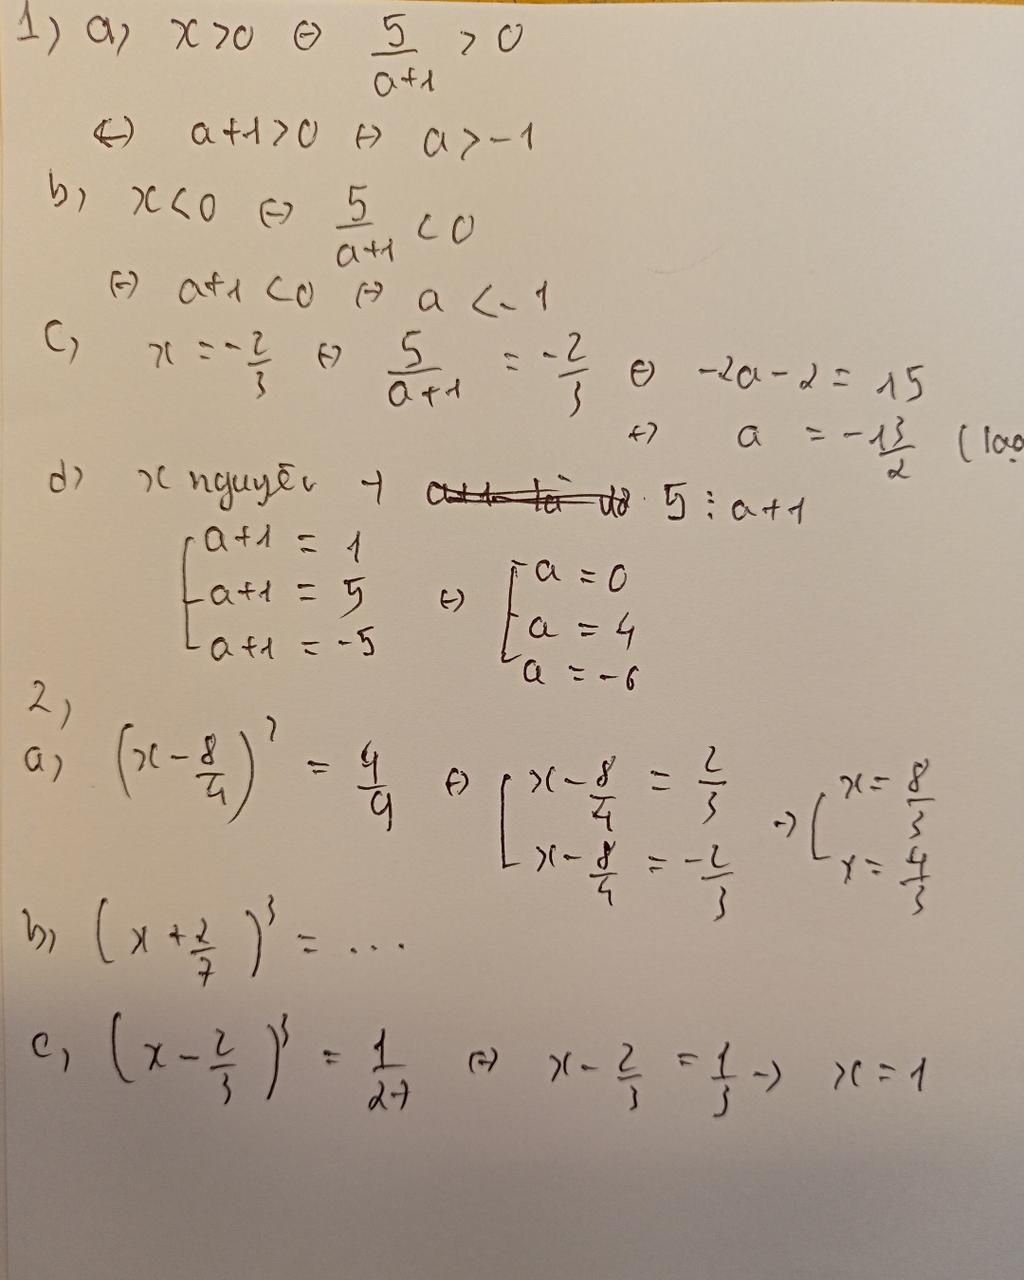 1) a) x>0 ⇔ 5/(a+1) > 0
⇔ a+1>0 ⇔ a>-1
b) x<0 ⇔ 5/(a+1) < 0
⇔ a+1 <0 ⇔ a <-1
c) x = -2/3 ⇔ 5/(a+1) = -2/3 ⇔ -2a-2 = 15
⇔ a = -13/2 (loạ
d) x nguyên → 5 ⋮ a+1
[ a+1 = 1
a+1 = 5 ⇔ [ a = 0
a+1 = -5 a = 4
a = -6
2)
a) (x - 8/4)² = 4/9 ⇔ [ x - 8/4 = 2/3 → [ x = 8/3
x - 8/4 = -2/3 x = 4/3
b) (x + 2/7)³ = ...
c) (x - 2/3)³ = 1/27 ⇔ x - 2/3 = 1/3 → x = 1